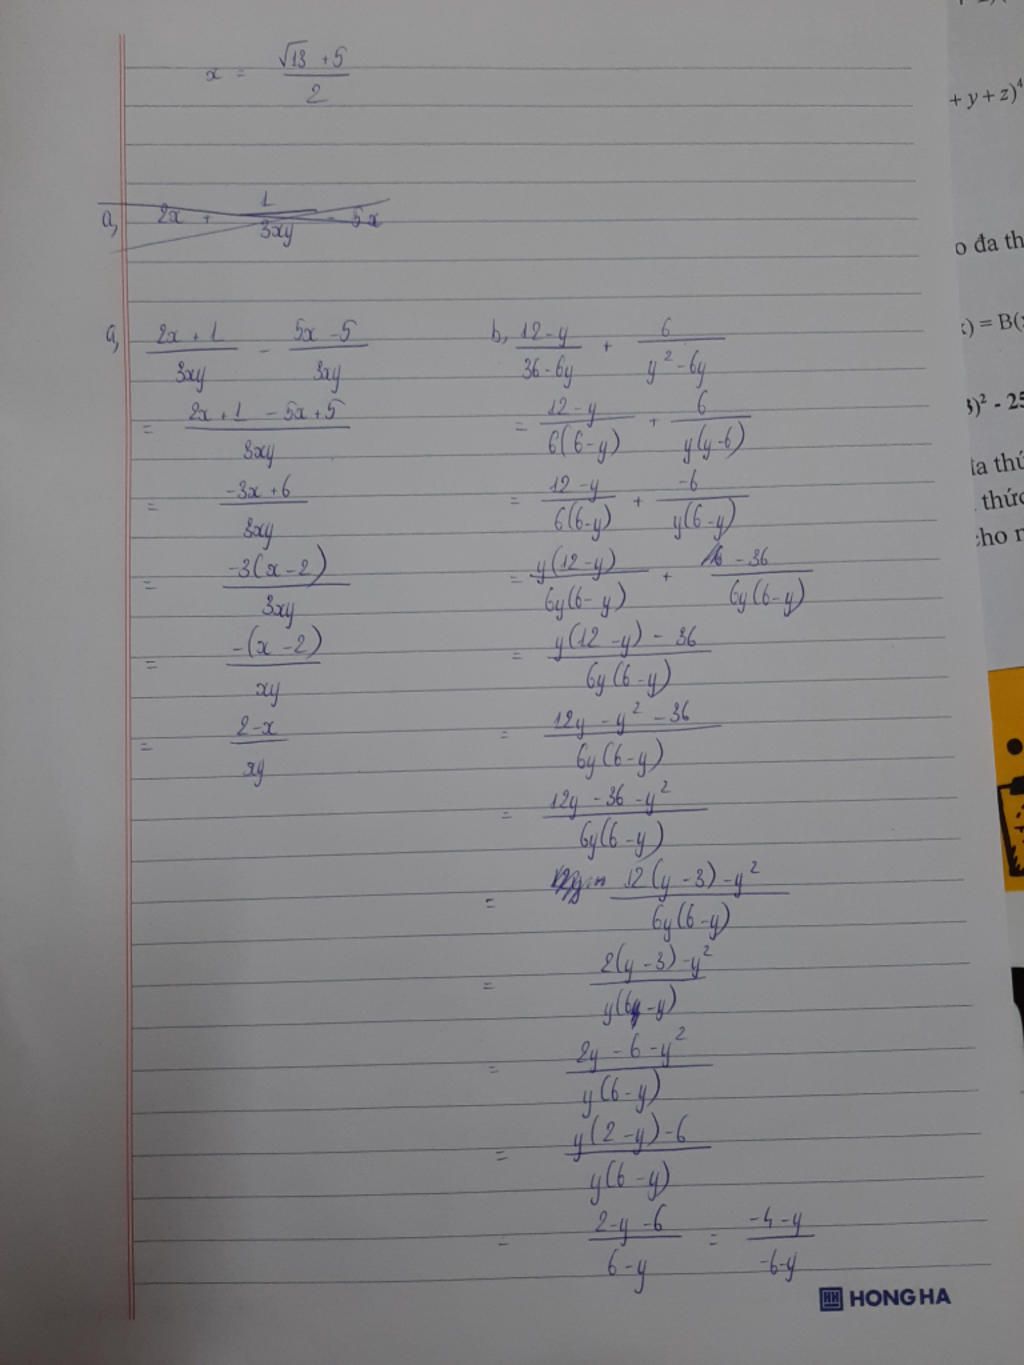 x = (√13 + 5)/2
+ y + z)⁴
a, 2x + 1/3xy - 5x
o đa th
a, (2x + 1)/3xy - (5x - 5)/3xy
= (2x + 1 - 5x + 5)/3xy
= (-3x + 6)/3xy
= -3(x - 2)/3xy
= -(x - 2)/xy
= (2 - x)/xy
b, (12 - y)/(36 - 6y) + 6/(y² - 6y)
= (12 - y)/6(6 - y) + 6/y(y - 6)
= (12 - y)/6(6 - y) + -6/y(6 - y)
= y(12 - y)/6y(6 - y) + -36/6y(6 - y)
= (y(12 - y) - 36)/6y(6 - y)
= (12y - y² - 36)/6y(6 - y)
= (12y - 36 - y²)/6y(6 - y)
= (12(y - 3) - y²)/6y(6 - y)
= (2(y - 3) - y²)/y(6 - y)
= (2y - 6 - y²)/y(6 - y)
= (y(2 - y) - 6)/y(6 - y)
= (2 - y - 6)/(6 - y) = (-4 - y)/(-6 - y)
) = B(
3)² - 25
thức
cho
HH HONG HA